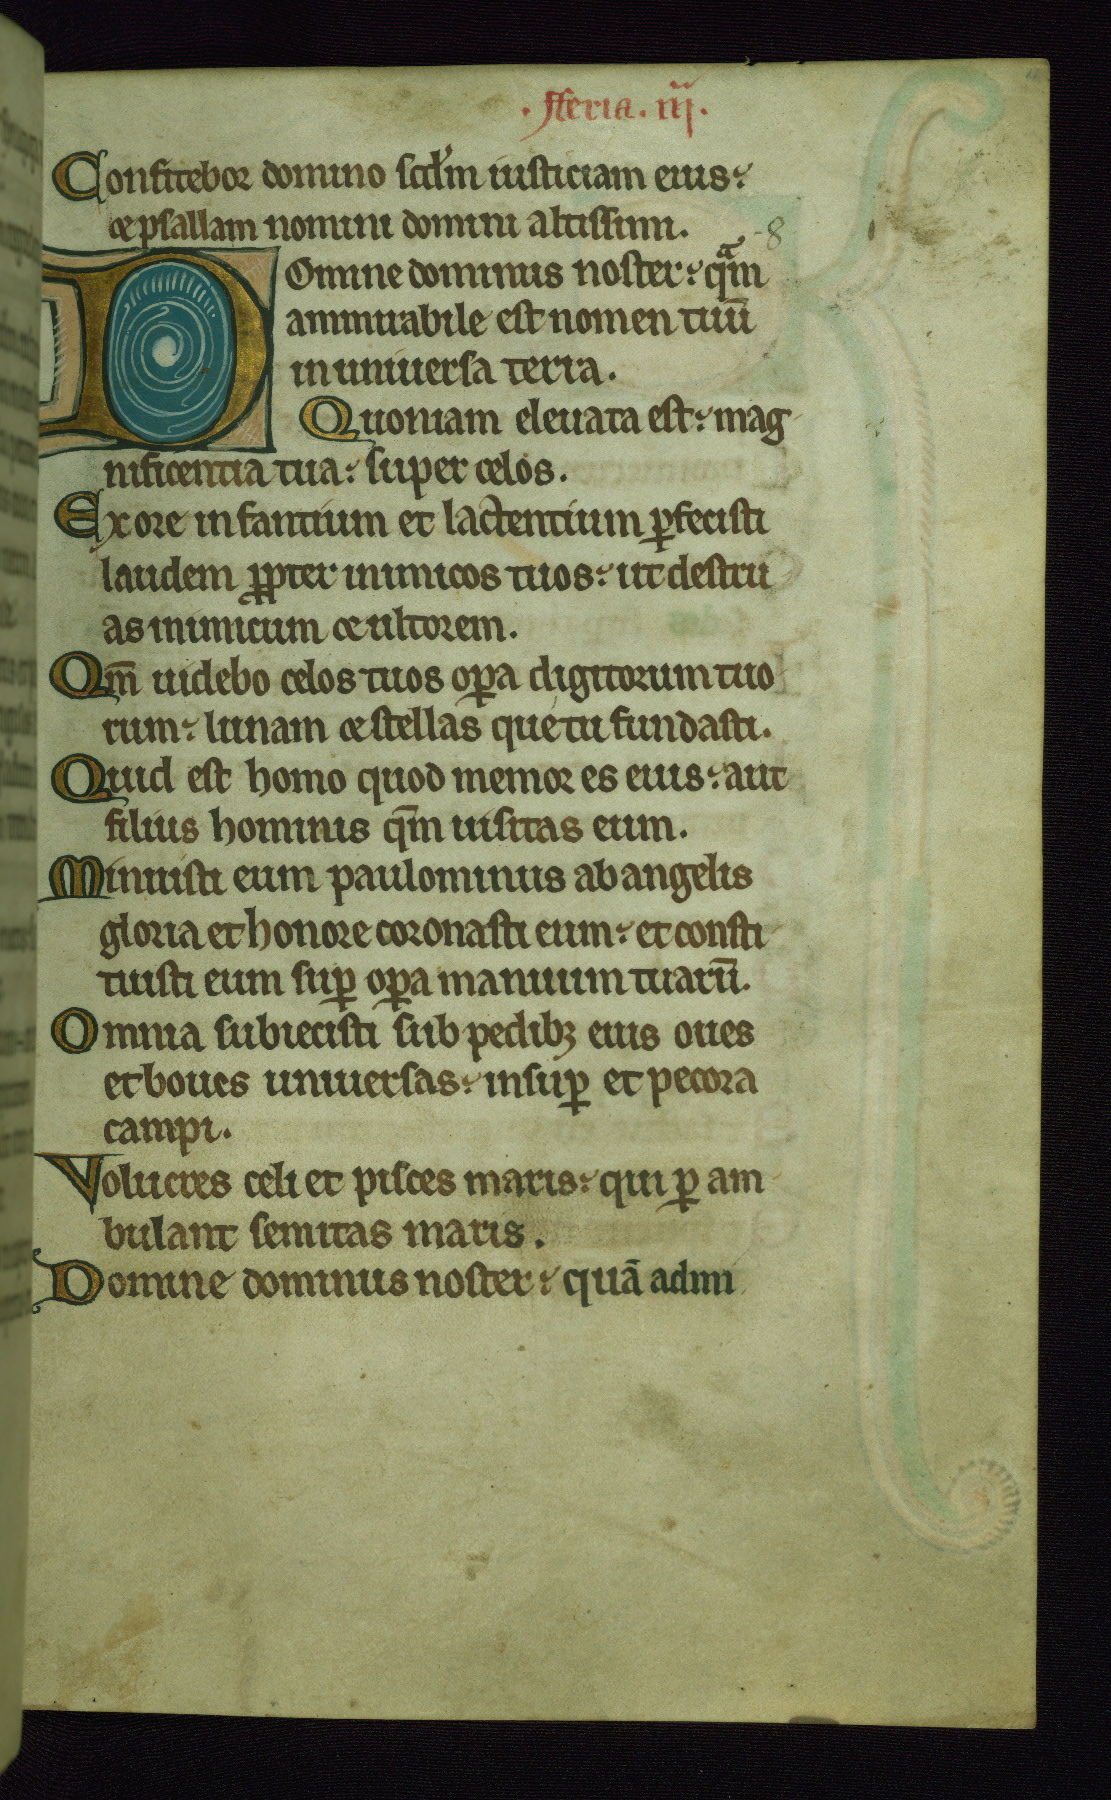 .fferia. iij.
Confitebor domino scdm iusticiam eius:
et psallam nomini domini altissimi.
-8
Domine dominus noster: qam
ammirabile est nomen tuū
in uniuersa terra.
Quoniam eleuata est: mag
nificentia tua: super celos.
Ex ore infantium et lactentium ꝑfecisti
laudem ꝓpter inimicos tuos: ut destru
as inimicum et ultorem.
Qm̄ uidebo celos tuos oꝑa digitorum tuo
rum: lunam et stellas que tu fundasti.
Quid est homo quod memor es eius: aut
filius hominis qm̄ uisitas eum.
Minuisti eum paulominus ab angelis
gloria et honore coronasti eum: et consti
tuisti eum suꝑ oꝑa manuum tuarū.
Omnia subiecisti sub pedibꝫ eius oues
et boues uniuersas: insuꝑ et pecora
campi.
Volucres celi et pisces maris: qui ꝑ am
bulant semitas maris.
Domine dominus noster: quā admi